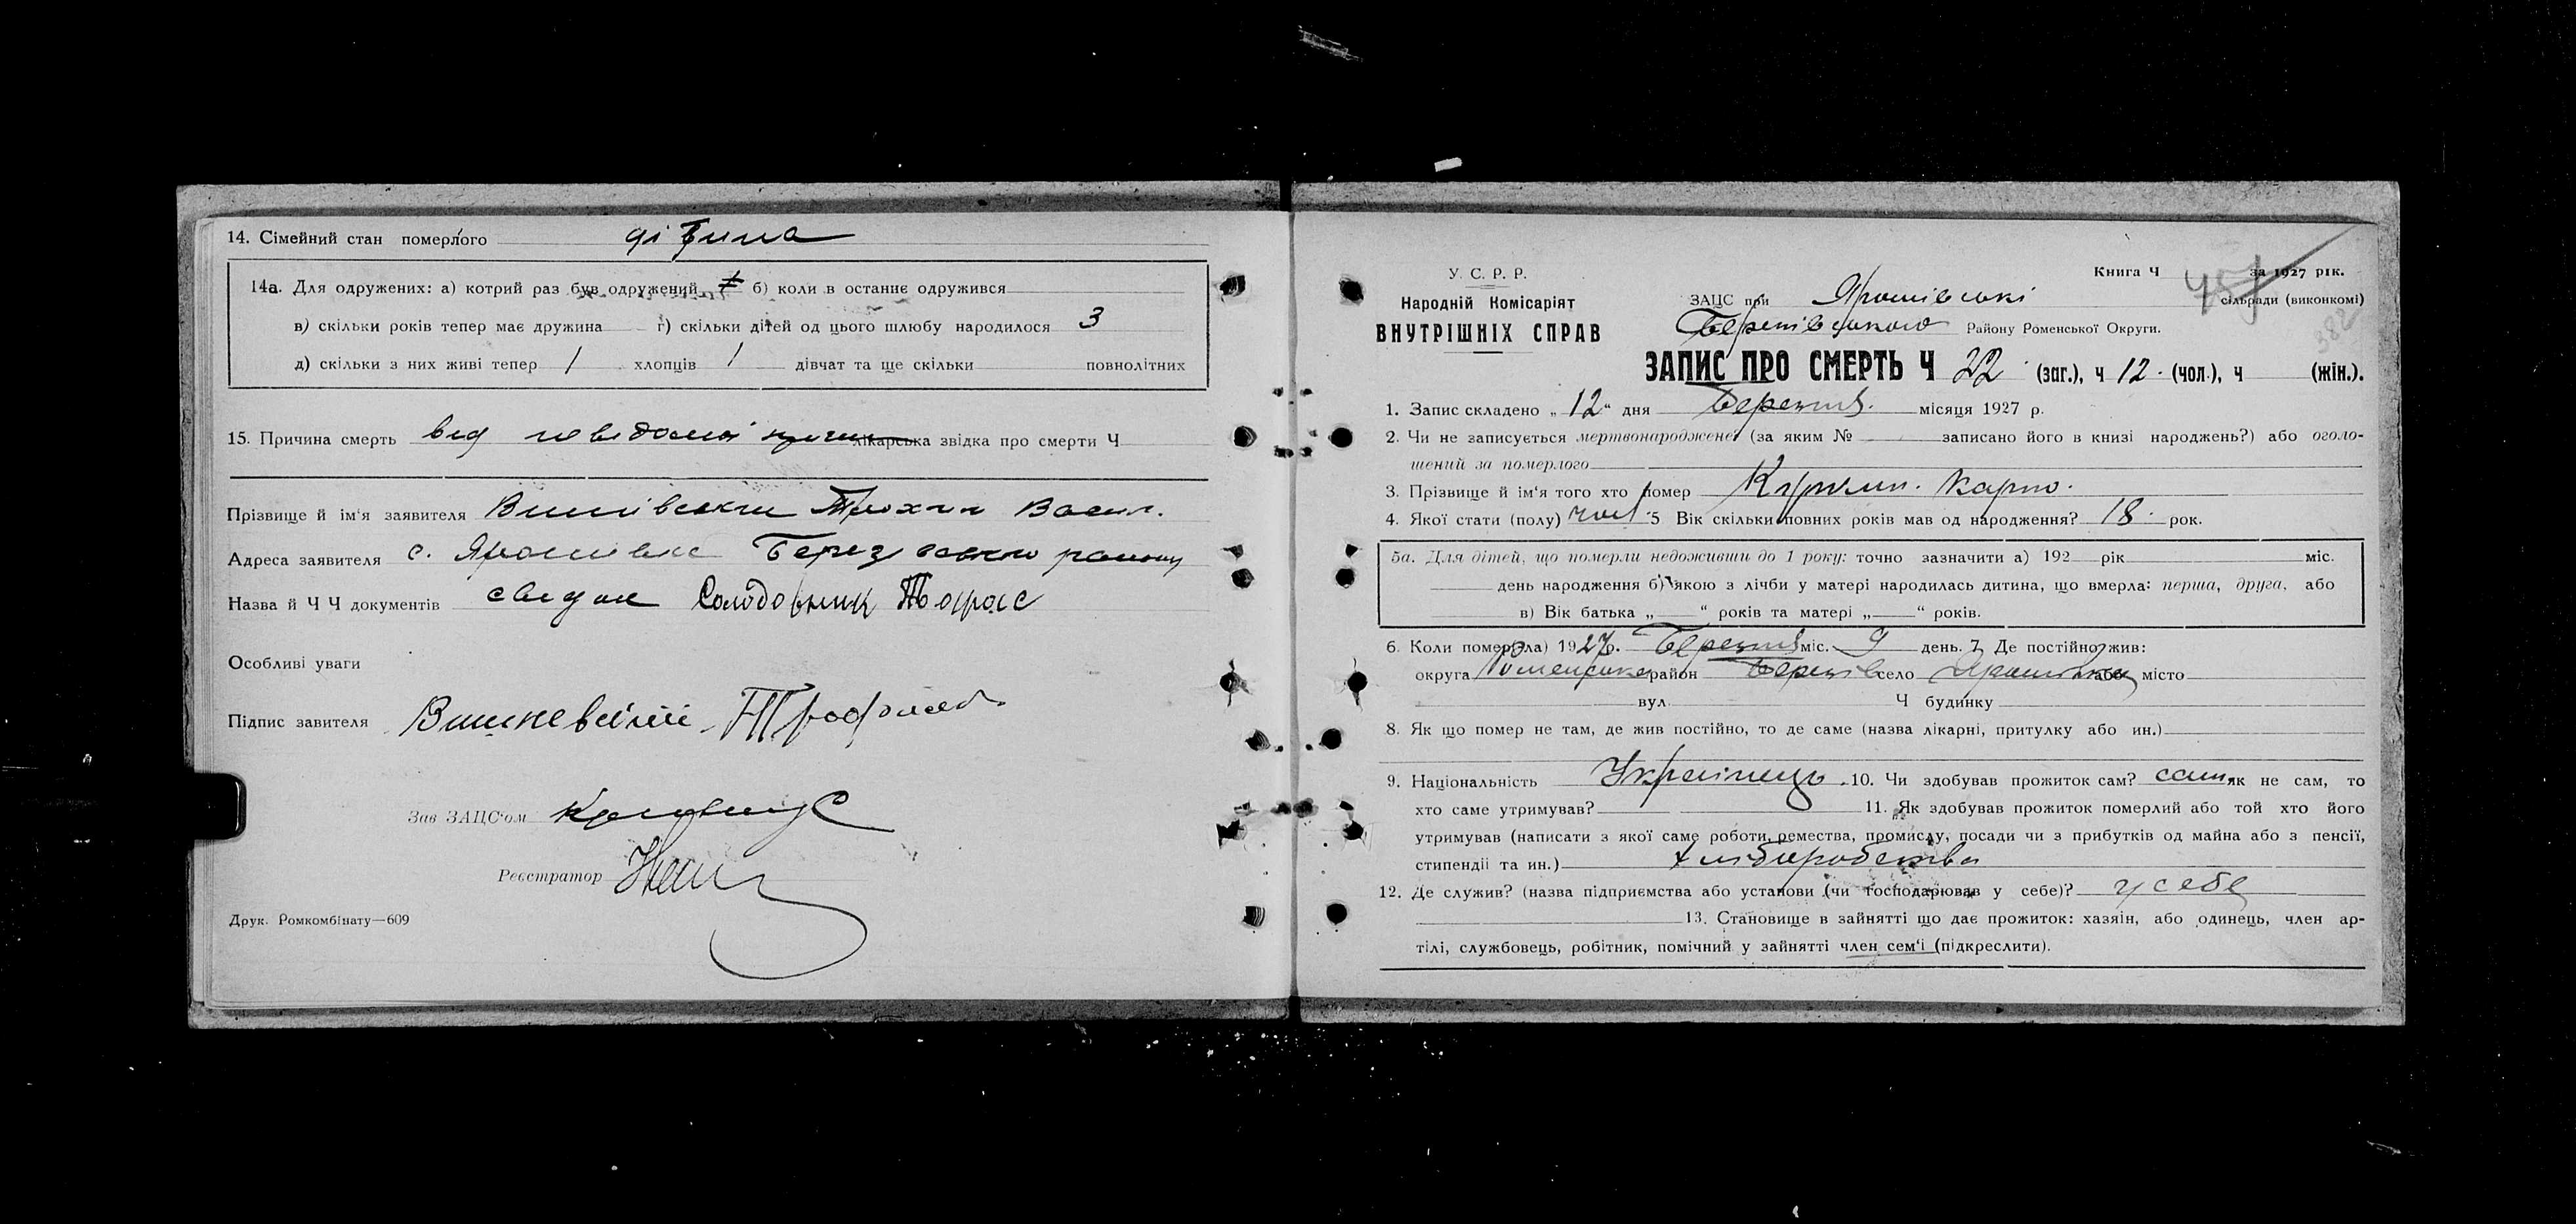 14. Сімейний стан померлого дітина
14а. Для одружених: а) котрий раз був одружений б) коли в останнє одружився
в) скільки років тепер має дружина г) скільки дітей од цього шлюбу народилося 3
д) скільки з них живі тепер 1 хлопців 1 дівчат та ще скільки повнолітних
15. Причина смерть від невідомої лікарська звідка про смерти Ч
Прізвище й ім'я заявителя Трохим Васил.
Адреса заявителя с. Ярошівка району
Назва й Ч Ч документів свідок Солодовник Тарас
Особливі уваги
Підпис завителя
Зав ЗАЦС'ом
Реєстратор
Друк. Ромкомбінату—609
У. С. Р. Р.
Народній Комісаріят
ВНУТРІШНІХ СПРАВ
Книга Ч за 1927 рік.
ЗАЦС при Ярошівські сільради (виконкомі)
Району Роменської Округи.
382
ЗАПИС ПРО СМЕРТЬ Ч 22 (заг.), ч 12 (чол.), ч (жін.).
1. Запис складено „12“ дня Березня місяця 1927 р.
2. Чи не записується мертвонароджене? (за яким № записано його в книзі народжень?) або оголо-
шений за померлого
3. Прізвище й ім'я того хто помер Карпо.
4. Якої стати (полу) чол. 5 Вік скільки повних років мав од народження? 18 рок.
5а. Для дітей, що померли недоживши до 1 року: точно зазначити а) 192 рік міс.
день народження б) якою з лічби у матері народилась дитина, що вмерла: перша, друга, або
в) Вік батька „ “ років та матері „ “ років.
6. Коли помер(ла) 1927р. Березня міс. 9 день. 7. Де постійно жив:
округа Роменська район Березів село Ярошівка або місто
вул. Ч будинку
8. Як що помер не там, де жив постійно, то де саме (назва лікарні, притулку або ин.)
9. Національність Українець. 10. Чи здобував прожиток сам? сам як не сам, то
хто саме утримував? 11. Як здобував прожиток померлий або той хто його
утримував (написати з якої саме роботи, ремества, промислу, посади чи з прибутків од майна або з пенсії,
стипендії та ин.) хліборобства
12. Де служив? (назва підприємства або установи (чи господарював у себе)? у себе
13. Становище в зайнятті що дає прожиток: хазяїн, або одинець, член ар-
тілі, службовець, робітник, помічний у зайнятті член сем'ї (підкреслити).